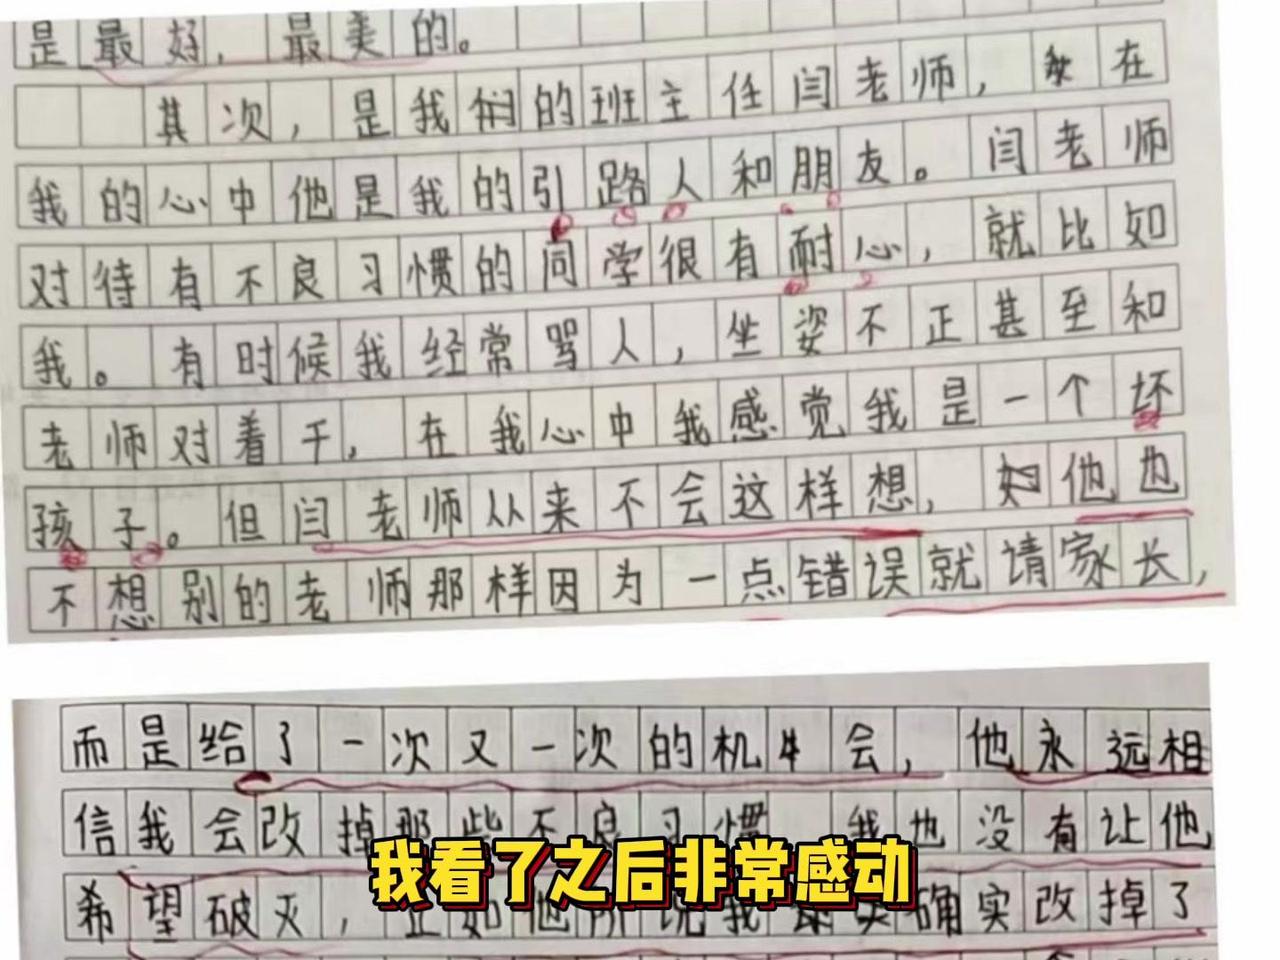 是最好，最美的。
其次，是我们的班主任闫老师，在
我的心中他是我的引路人和朋友。闫老师
对待有不良习惯的同学很有耐心，就比如
我。有时候我经常骂人，坐姿不正甚至和
老师对着干，在我心中我感觉我是一个坏
孩子。但闫老师从来不会这样想，他也
不想别的老师那样因为一点错误就请家长，
而是给了一次又一次的机会，他永远相
信我会改掉那些不良习惯，我也没有让他
希望破灭，正如他所说我确实改掉了
我看了之后非常感动